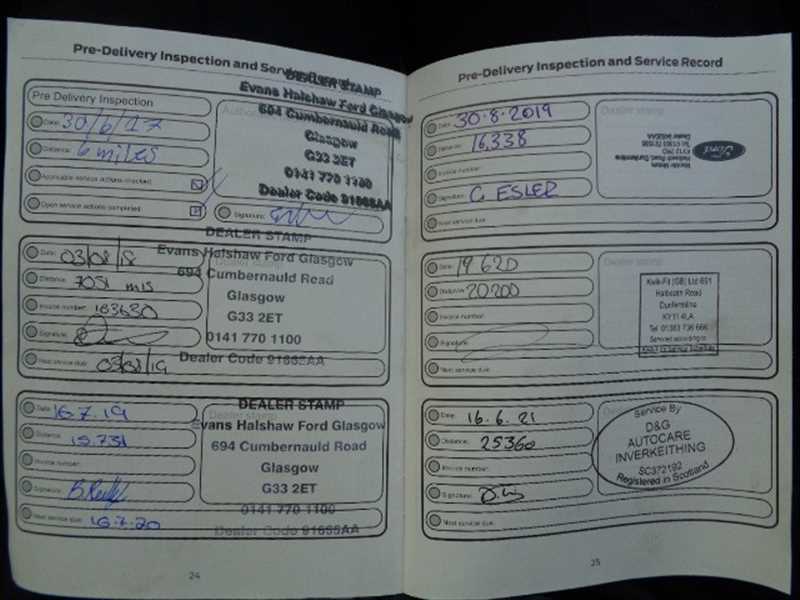 Pre-Delivery Inspection and Service Record
Pre Delivery Inspection
Date: 30/6/17
Distance: 6 miles
Applicable service actions checked
Open service actions completed
Signature:
DEALER STAMP
Evans Halshaw Ford Glasgow
694 Cumbernauld Road
Glasgow
G33 2ET
0141 770 1100
Dealer Code 91665AA
Date: 03/08/18
Distance: 7051 mls
Invoice number: 183630
Signature:
Next service due: 03/08/19
Dealer stamp
DEALER STAMP
Evans Halshaw Ford Glasgow
694 Cumbernauld Road
Glasgow
G33 2ET
0141 770 1100
Dealer Code 91665AA
Date: 16.7.19
Distance: 15.731
Invoice number:
Signature:
Next service due: 16.7.20
Dealer stamp
DEALER STAMP
Evans Halshaw Ford Glasgow
694 Cumbernauld Road
Glasgow
G33 2ET
0141 770 1100
Dealer Code 91665AA
24
Pre-Delivery Inspection and Service Record
Date: 30.8.2019
Distance: 16,338
Invoice number:
Signature: C ESLER
Next service due:
Dealer stamp
Ford
Date: 19 620
Distance: 20200
Invoice number:
Signature:
Next service due:
Dealer stamp
Kwik-Fit (GB) Ltd 651
Halbeath Road
Dunfermline
KY11 4LA
Tel 01383 736 666
Serviced according to
Kwik-Fit Service Schedule
Date: 16.6.21
Distance: 25360
Invoice number:
Signature:
Next service due:
Service By
D&G
AUTOCARE
INVERKEITHING
SC372192
Registered in Scotland
25